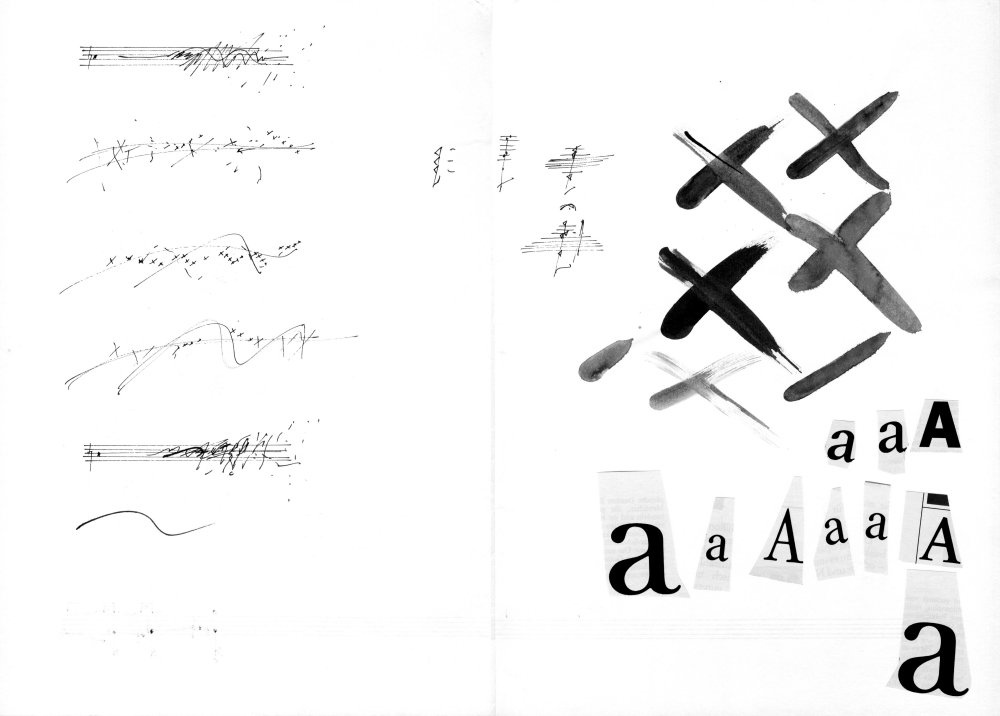 a a A
a a A a a A
a